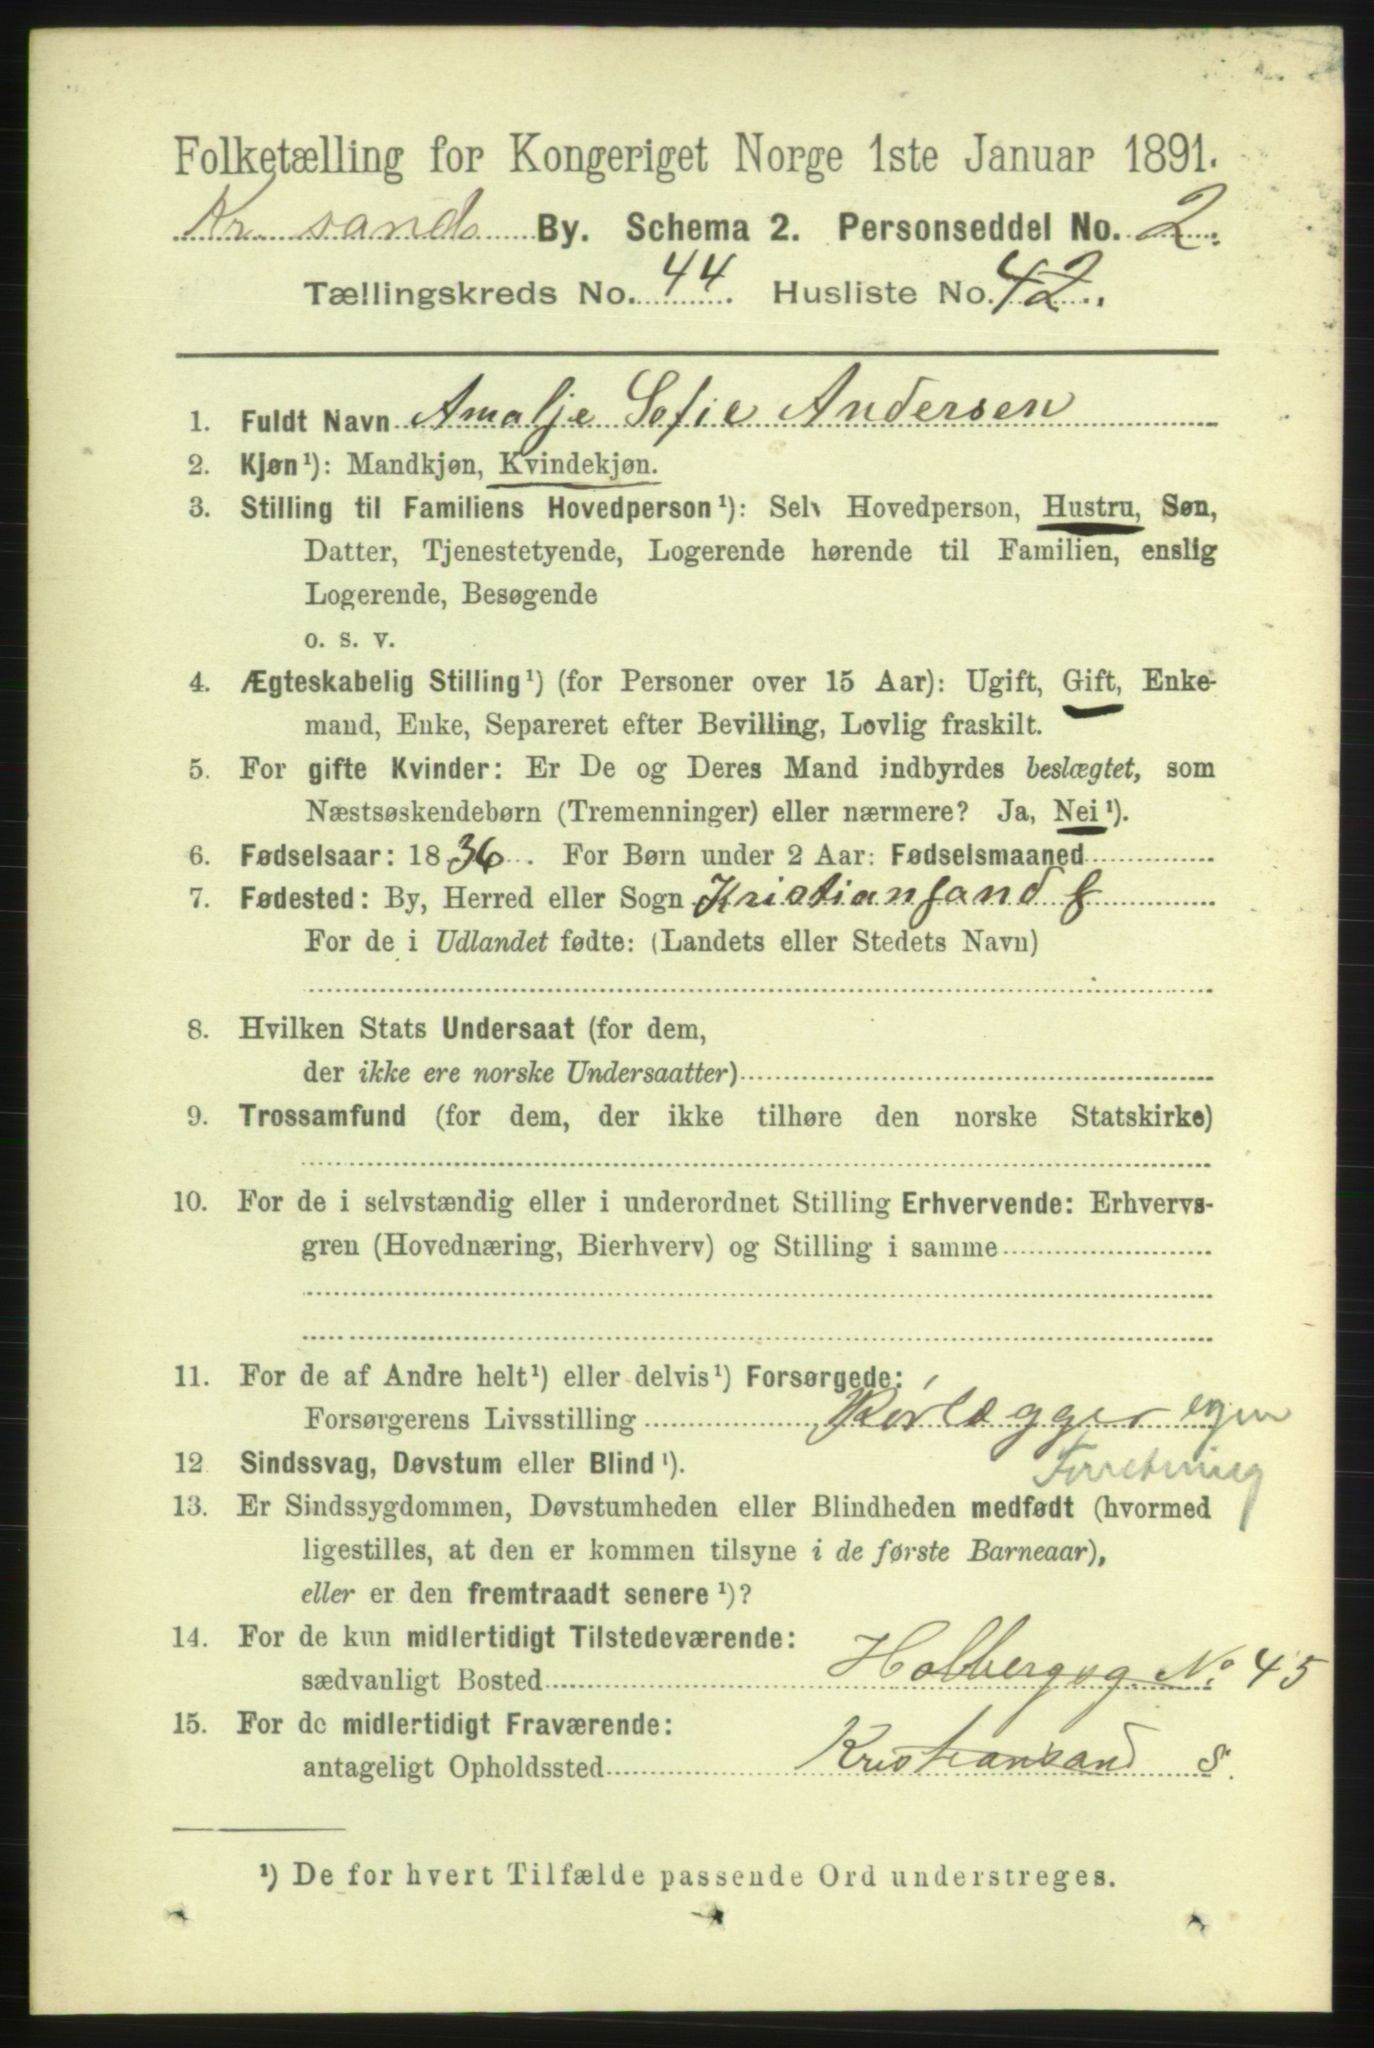 Folketælling for Kongeriget Norge 1ste Januar 1891.
Kr. sands By. Schema 2. Personseddel No. 2.
Tællingskreds No. 44. Husliste No. 42.
1. Fuldt Navn Amalje Sofie Andersen
2. Kjøn¹): Mandkjøn, Kvindekjøn.
3. Stilling til Familiens Hovedperson¹): Selv Hovedperson, Hustru, Søn,
Datter, Tjenestetyende, Logerende hørende til Familien, enslig
Logerende, Besøgende
o. s. v.
4. Ægteskabelig Stilling¹) (for Personer over 15 Aar): Ugift, Gift, Enke-
mand, Enke, Separeret efter Bevilling, Lovlig fraskilt.
5. For gifte Kvinder: Er De og Deres Mand indbyrdes beslægtet, som
Næstsøskendebørn (Tremenninger) eller nærmere? Ja, Nei¹).
6. Fødselsaar: 1836. For Børn under 2 Aar: Fødselsmaaned
7. Fødested: By, Herred eller Sogn Kristiansand S
For de i Udlandet fødte: (Landets eller Stedets Navn)
8. Hvilken Stats Undersaat (for dem,
der ikke ere norske Undersaatter)
9. Trossamfund (for dem, der ikke tilhøre den norske Statskirke)
10. For de i selvstændig eller i underordnet Stilling Erhvervende: Erhvervs-
gren (Hovednæring, Bierhverv) og Stilling i samme
11. For de af Andre helt¹) eller delvis¹) Forsørgede:
Forsørgerens Livsstilling Rørlægger egen
Forretning
12 Sindssvag, Døvstum eller Blind¹).
13. Er Sindssygdommen, Døvstumheden eller Blindheden medfødt (hvormed
ligestilles, at den er kommen tilsyne i de første Barneaar),
eller er den fremtraadt senere¹)?
14. For de kun midlertidigt Tilstedeværende:
sædvanligt Bosted Holbergsg No. 45
15. For de midlertidigt Fraværende:
antageligt Opholdssted Kristiansand S.
¹) De for hvert Tilfælde passende Ord understreges.